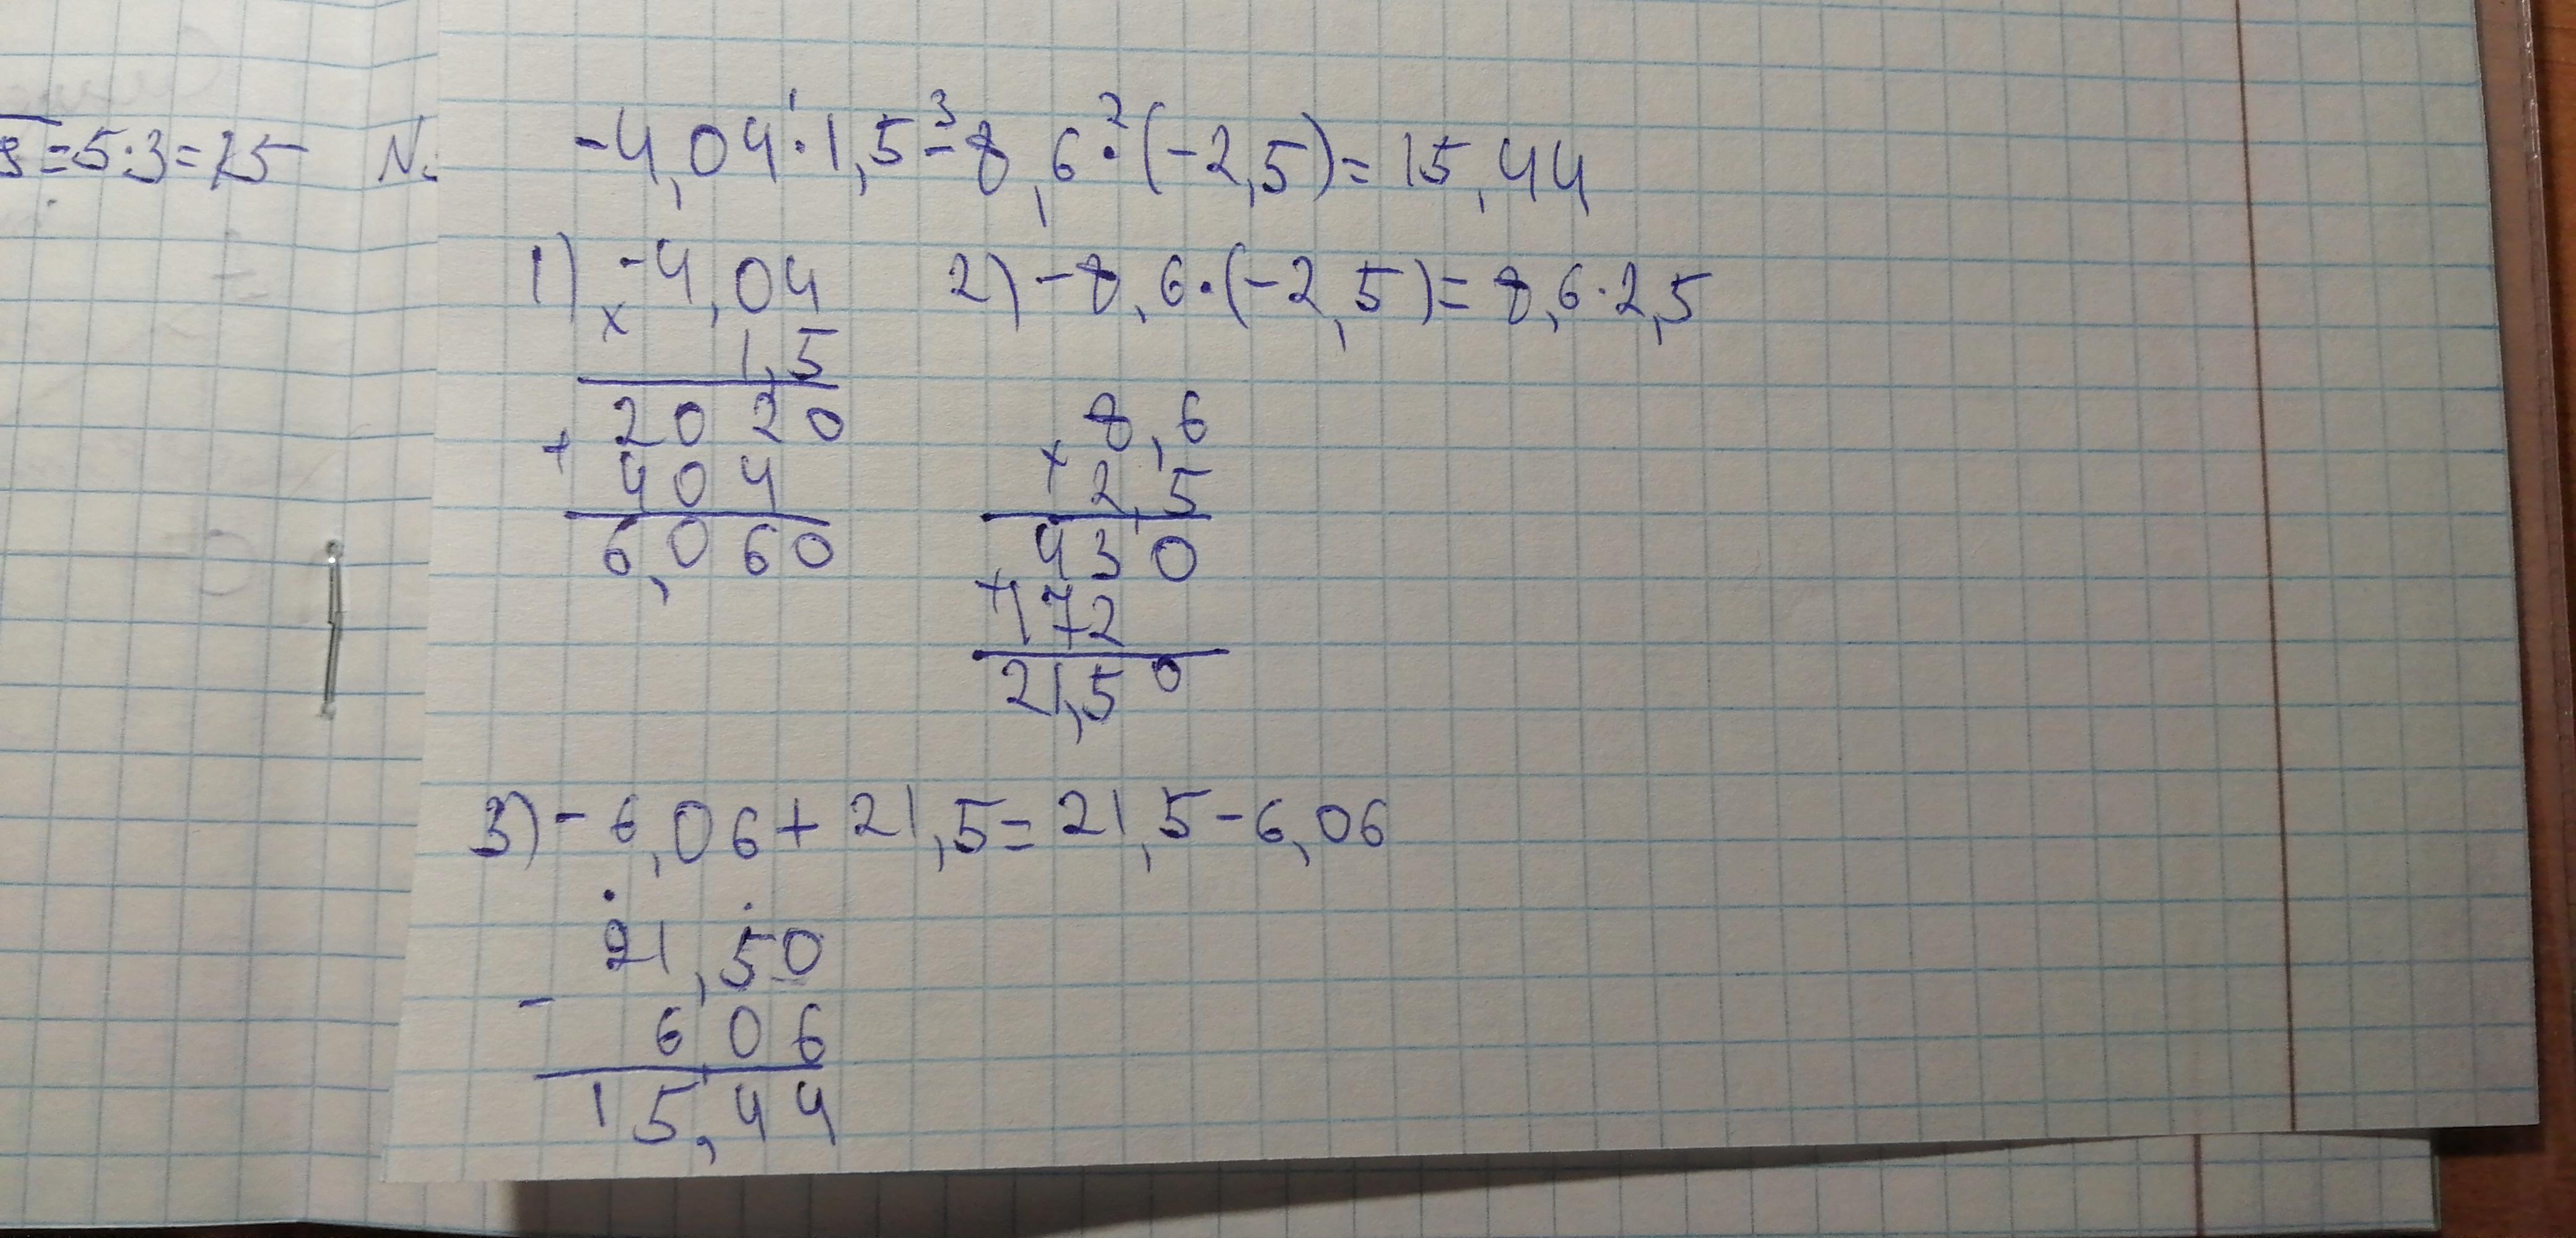 = 5 · 3 = 15 N:
1 3 2
-4,04 · 1,5 - 8,6 · (-2,5) = 15,44
1) -4,04
× 1,5
2020
+ 404
6,060
2) -8,6 · (-2,5) = 8,6 · 2,5
8,6
× 2,5
430
+ 172
21,50
3) -6,06 + 21,5 = 21,5 - 6,06
21,50
- 6,06
15,44